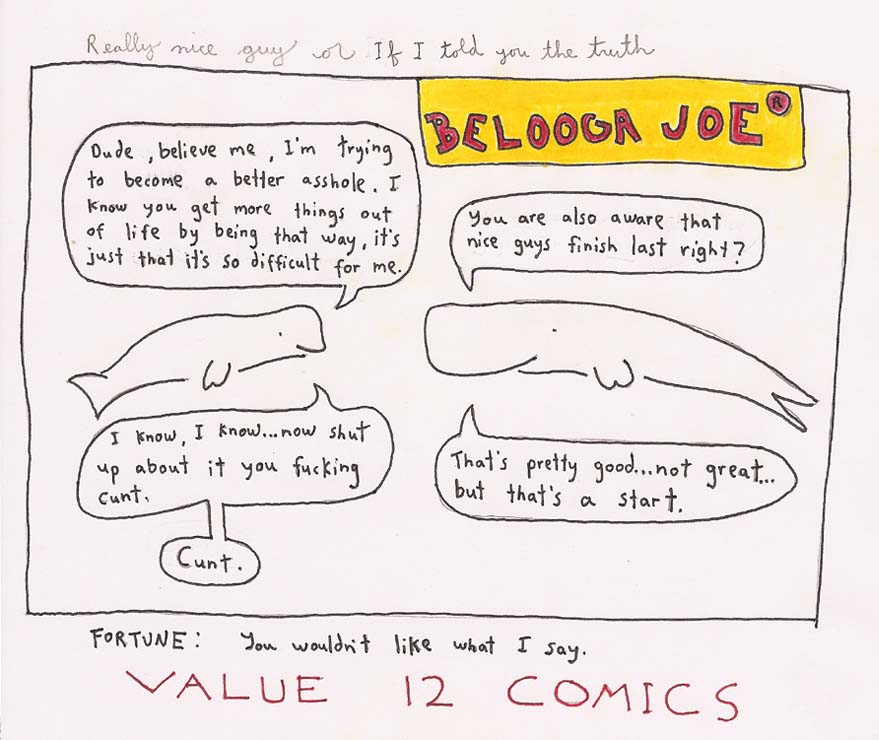 Really nice guy or If I told you the truth
BELOOGA JOE®
Dude, believe me, I'm trying
to become a better asshole. I
know you get more things out
of life by being that way, it's
just that it's so difficult for me.
You are also aware that
nice guys finish last right?
I know, I know...now shut
up about it you fucking
cunt.
Cunt.
That's pretty good...not great...
but that's a start.
FORTUNE: You wouldn't like what I say.
VALUE 12 COMICS